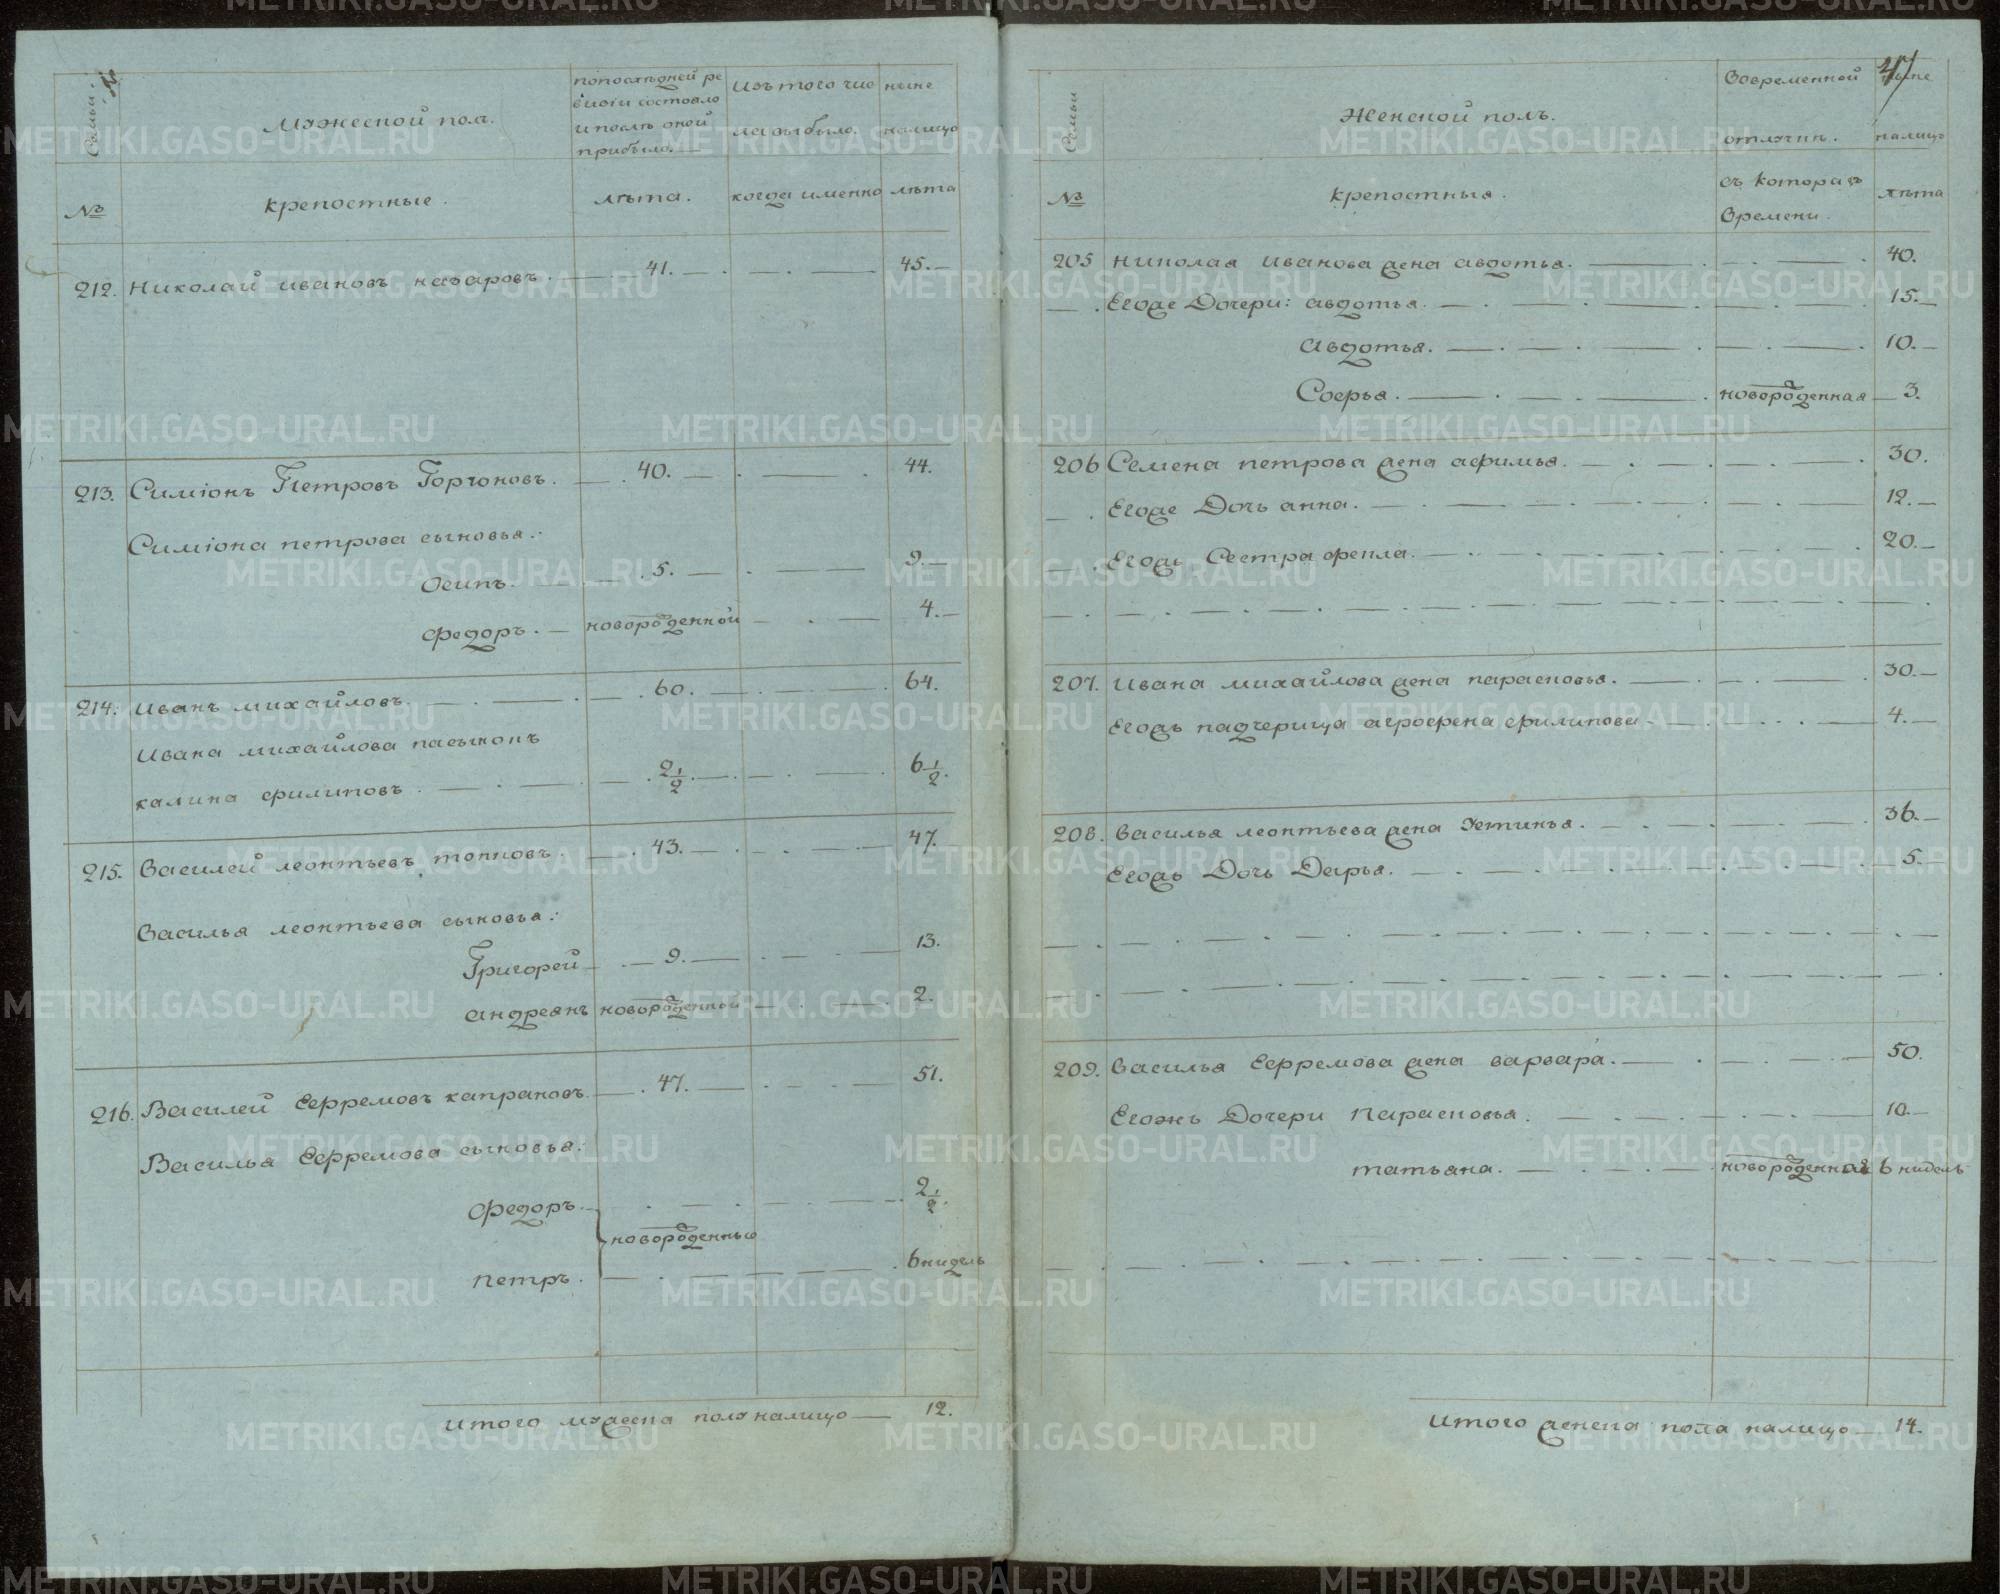 Семьи.
Мужеской полъ.
попоследней ре
визiи состояло
и после оной
прибыло.
Изъ того чис
ла выбыло.
ныне
налицо
№
крепостные.
лета.
когда именно
лета
212. Николай Ивановъ назаровъ. 41. 45.
213. Симiонъ Петровъ Горчоновъ. 40. 44.
Симiона петрова сыновья:
Осипъ. 5. 9.
Федоръ. новорожденной 4.
214. Иванъ михайловъ. 60. 64.
Ивана михайлова пасынокъ
калина филиповъ. 2 1/2. 6 1/2.
215. Василей леонтьевъ топковъ. 43. 47.
Василья леонтьева сыновья:
Григорей 9. 13.
андреянъ новорожденной 2.
216. Василей Ефремовъ капрановъ. 47. 51.
Василья Ефремова сыновья:
Федоръ. 2 1/2.
новорожденныя
петръ. 6 нидель
итого мужеска полу налицо 12.
47
Семьи
Женской полъ.
Вовременной
отлучке.
ныне
налицо
№
крепостныя.
съ котораго
времени.
лета
205 николая иванова жена авдотья. 40.
Егоже Дочери: авдотья. 15.
авдотья. 10.
Софья. новорожденная 3.
206 Семена петрова жена афимья. 30.
Егоже Дочь анна. 12.
Егожъ Сестра фекла. 20.
207. Ивана михайлова жена парасковья. 30.
Егожъ падчерица агрофена филипова 4.
208. Василья леонтьева жена Устинья. 36.
Егожъ Дочь Дарья. 5.
209. Василья Ефремова жена варвара. 50.
Егожъ Дочери Парасковья. 10.
татьяна. новорожденная 6 нидель
Итого женска пола налицо 14.
METRIKI.GASO-URAL.RU